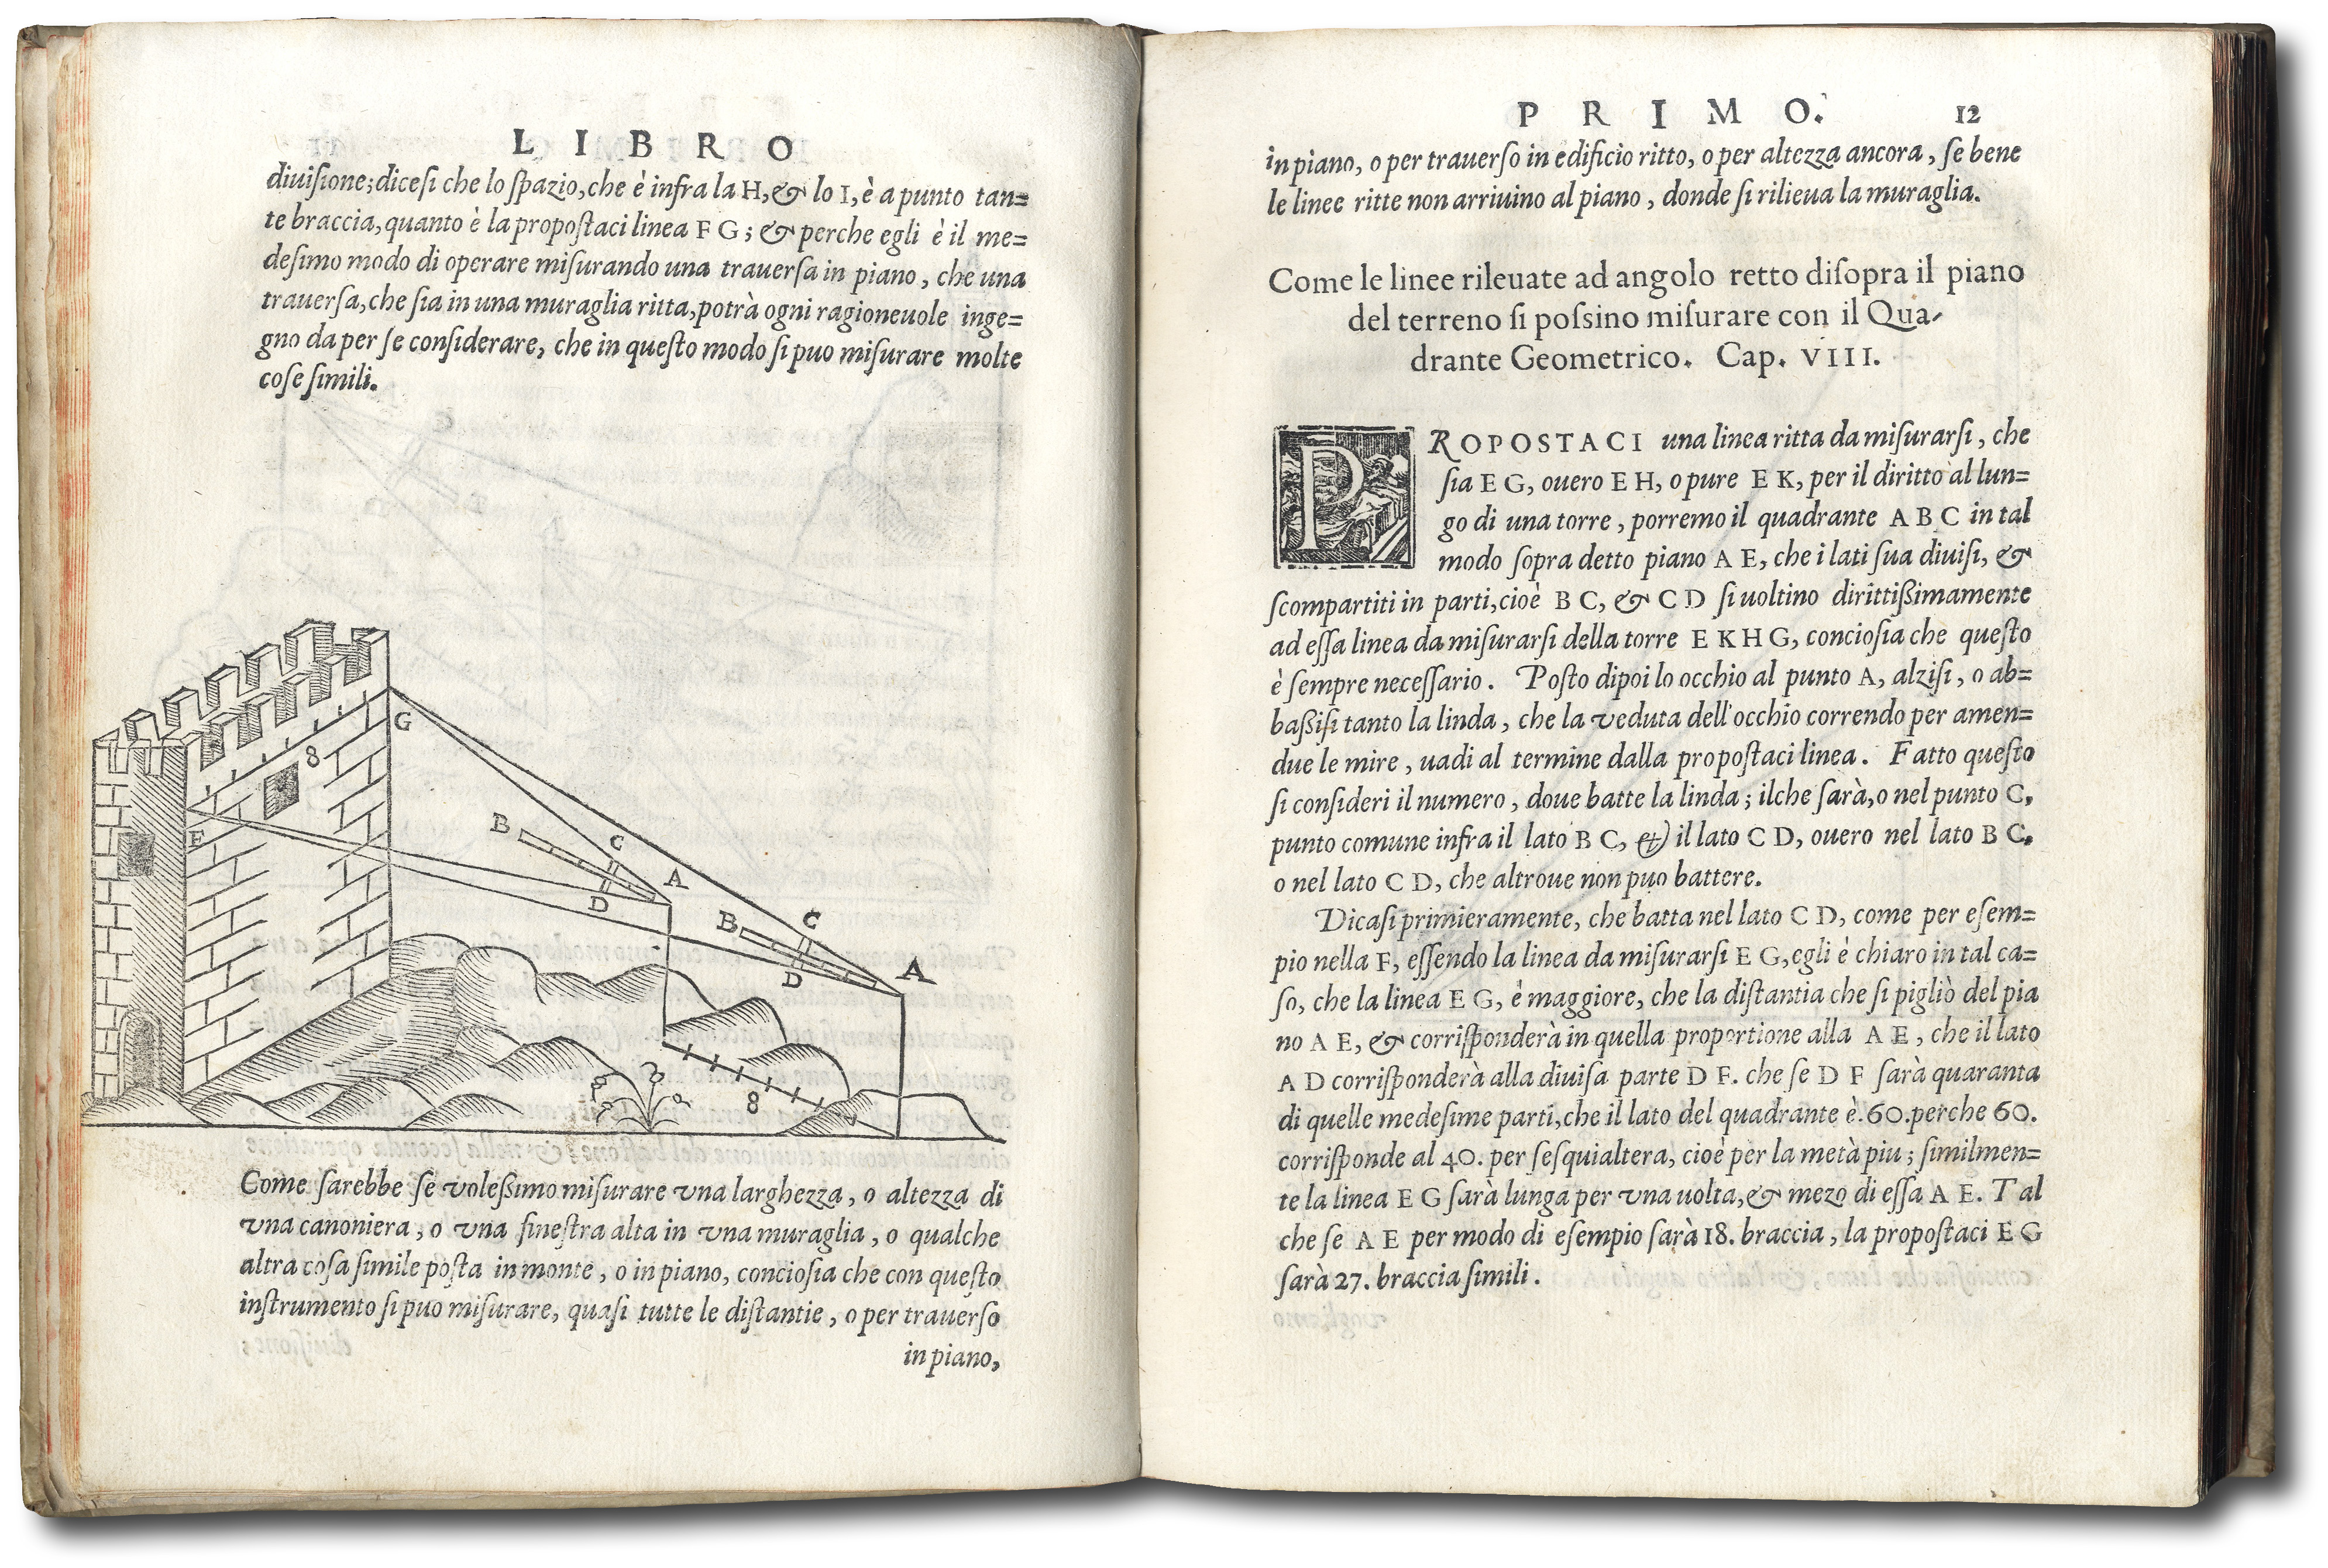 LIBRO
diuiſione; diceſi che lo ſpazio, che è infra la H, & lo I, è a punto tan=
te braccia, quanto è la propoſtaci linea F G; & perche egli è il me=
deſimo modo di operare miſurando una trauerſa in piano, che una
trauerſa, che ſia in una muraglia ritta, potrà ogni ragioneuole inge=
gno da per ſe conſiderare, che in queſto modo ſi puo miſurare molte
coſe ſimili.
G
8
F
B
C
A
D
B
C
A
D
8
Come ſarebbe ſe voleßimo miſurare vna larghezza, o altezza di
vna canoniera, o vna fineſtra alta in vna muraglia, o qualche
altra coſa ſimile poſta in monte, o in piano, concioſia che con queſto
inſtrumento ſi puo miſurare, quaſi tutte le diſtantie, o per trauerſo
in piano,
PRIMO. 12
in piano, o per trauerſo in edificio ritto, o per altezza ancora, ſe bene
le linee ritte non arriuino al piano, donde ſi rilieua la muraglia.
Come le linee rileuate ad angolo retto diſopra il piano
del terreno ſi poſsino miſurare con il Qua-
drante Geometrico. Cap. VIII.
PROPOSTACI una linea ritta da miſurarſi, che
ſia E G, ouero E H, o pure E K, per il diritto al lun=
go di una torre, porremo il quadrante A B C in tal
modo ſopra detto piano A E, che i lati ſua diuiſi, &
ſcompartiti in parti, cioè B C, & C D ſi uoltino dirittißimamente
ad eſſa linea da miſurarſi della torre E K H G, concioſia che queſto
è ſempre neceſſario. Poſto dipoi lo occhio al punto A, alziſi, o ab=
baßiſi tanto la linda, che la veduta dell'occhio correndo per amen=
due le mire, uadi al termine dalla propoſtaci linea. Fatto queſto
ſi conſideri il numero, doue batte la linda; ilche ſarà, o nel punto C,
punto comune infra il lato B C, & il lato C D, ouero nel lato B C,
o nel lato C D, che altroue non puo battere.
Dicaſi primieramente, che batta nel lato C D, come per eſem=
pio nella F, eſſendo la linea da miſurarſi E G, egli è chiaro in tal ca=
ſo, che la linea E G, è maggiore, che la diſtantia che ſi pigliò del pia
no A E, & corriſponderà in quella proportione alla A E, che il lato
A D corriſponderà alla diuiſa parte D F. che ſe D F ſarà quaranta
di quelle medeſime parti, che il lato del quadrante è .60. perche 60.
corriſponde al 40. per ſeſquialtera, cioè per la metà piu; ſimilmen=
te la linea E G ſarà lunga per vna uolta, & mezo di eſſa A E. Tal
che ſe A E per modo di eſempio ſarà 18. braccia, la propoſtaci E G
ſarà 27. braccia ſimili.